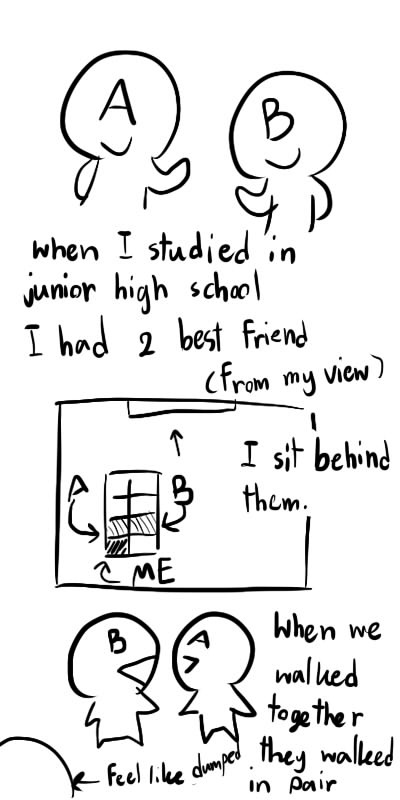 A
B
when I studied in
junior high school
I had 2 best friend
(from my view)
I sit behind
them.
A
B
ME
B
A
When we
walked
together
they walked
in pair
Feel like dumped